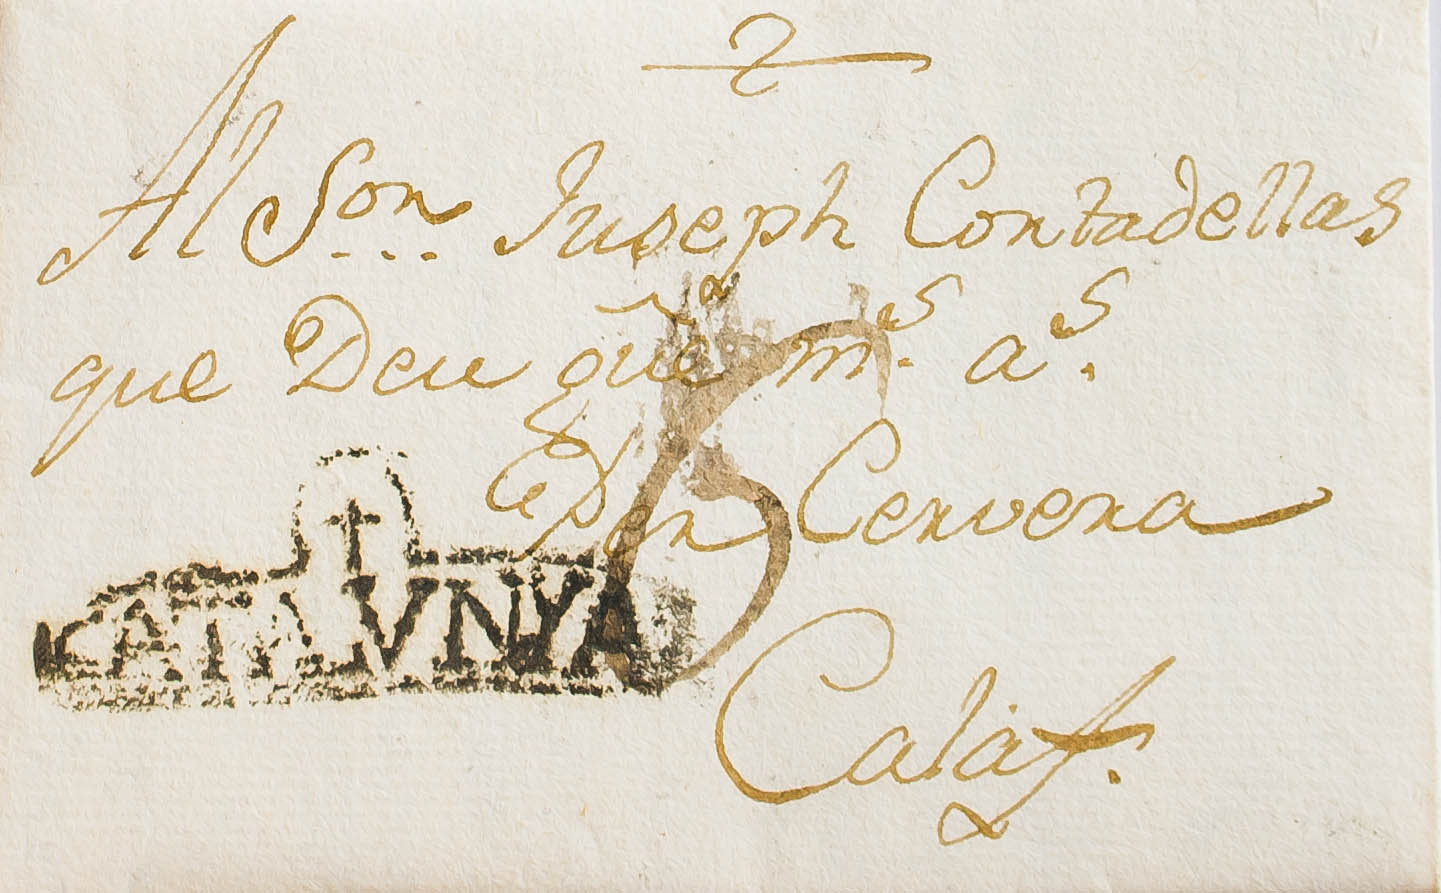 Al Sor. Juseph Contadellas
que Deu gũe. mˢ. aˢ.
Per Cervera
CATALVNYA
5
Calaf.